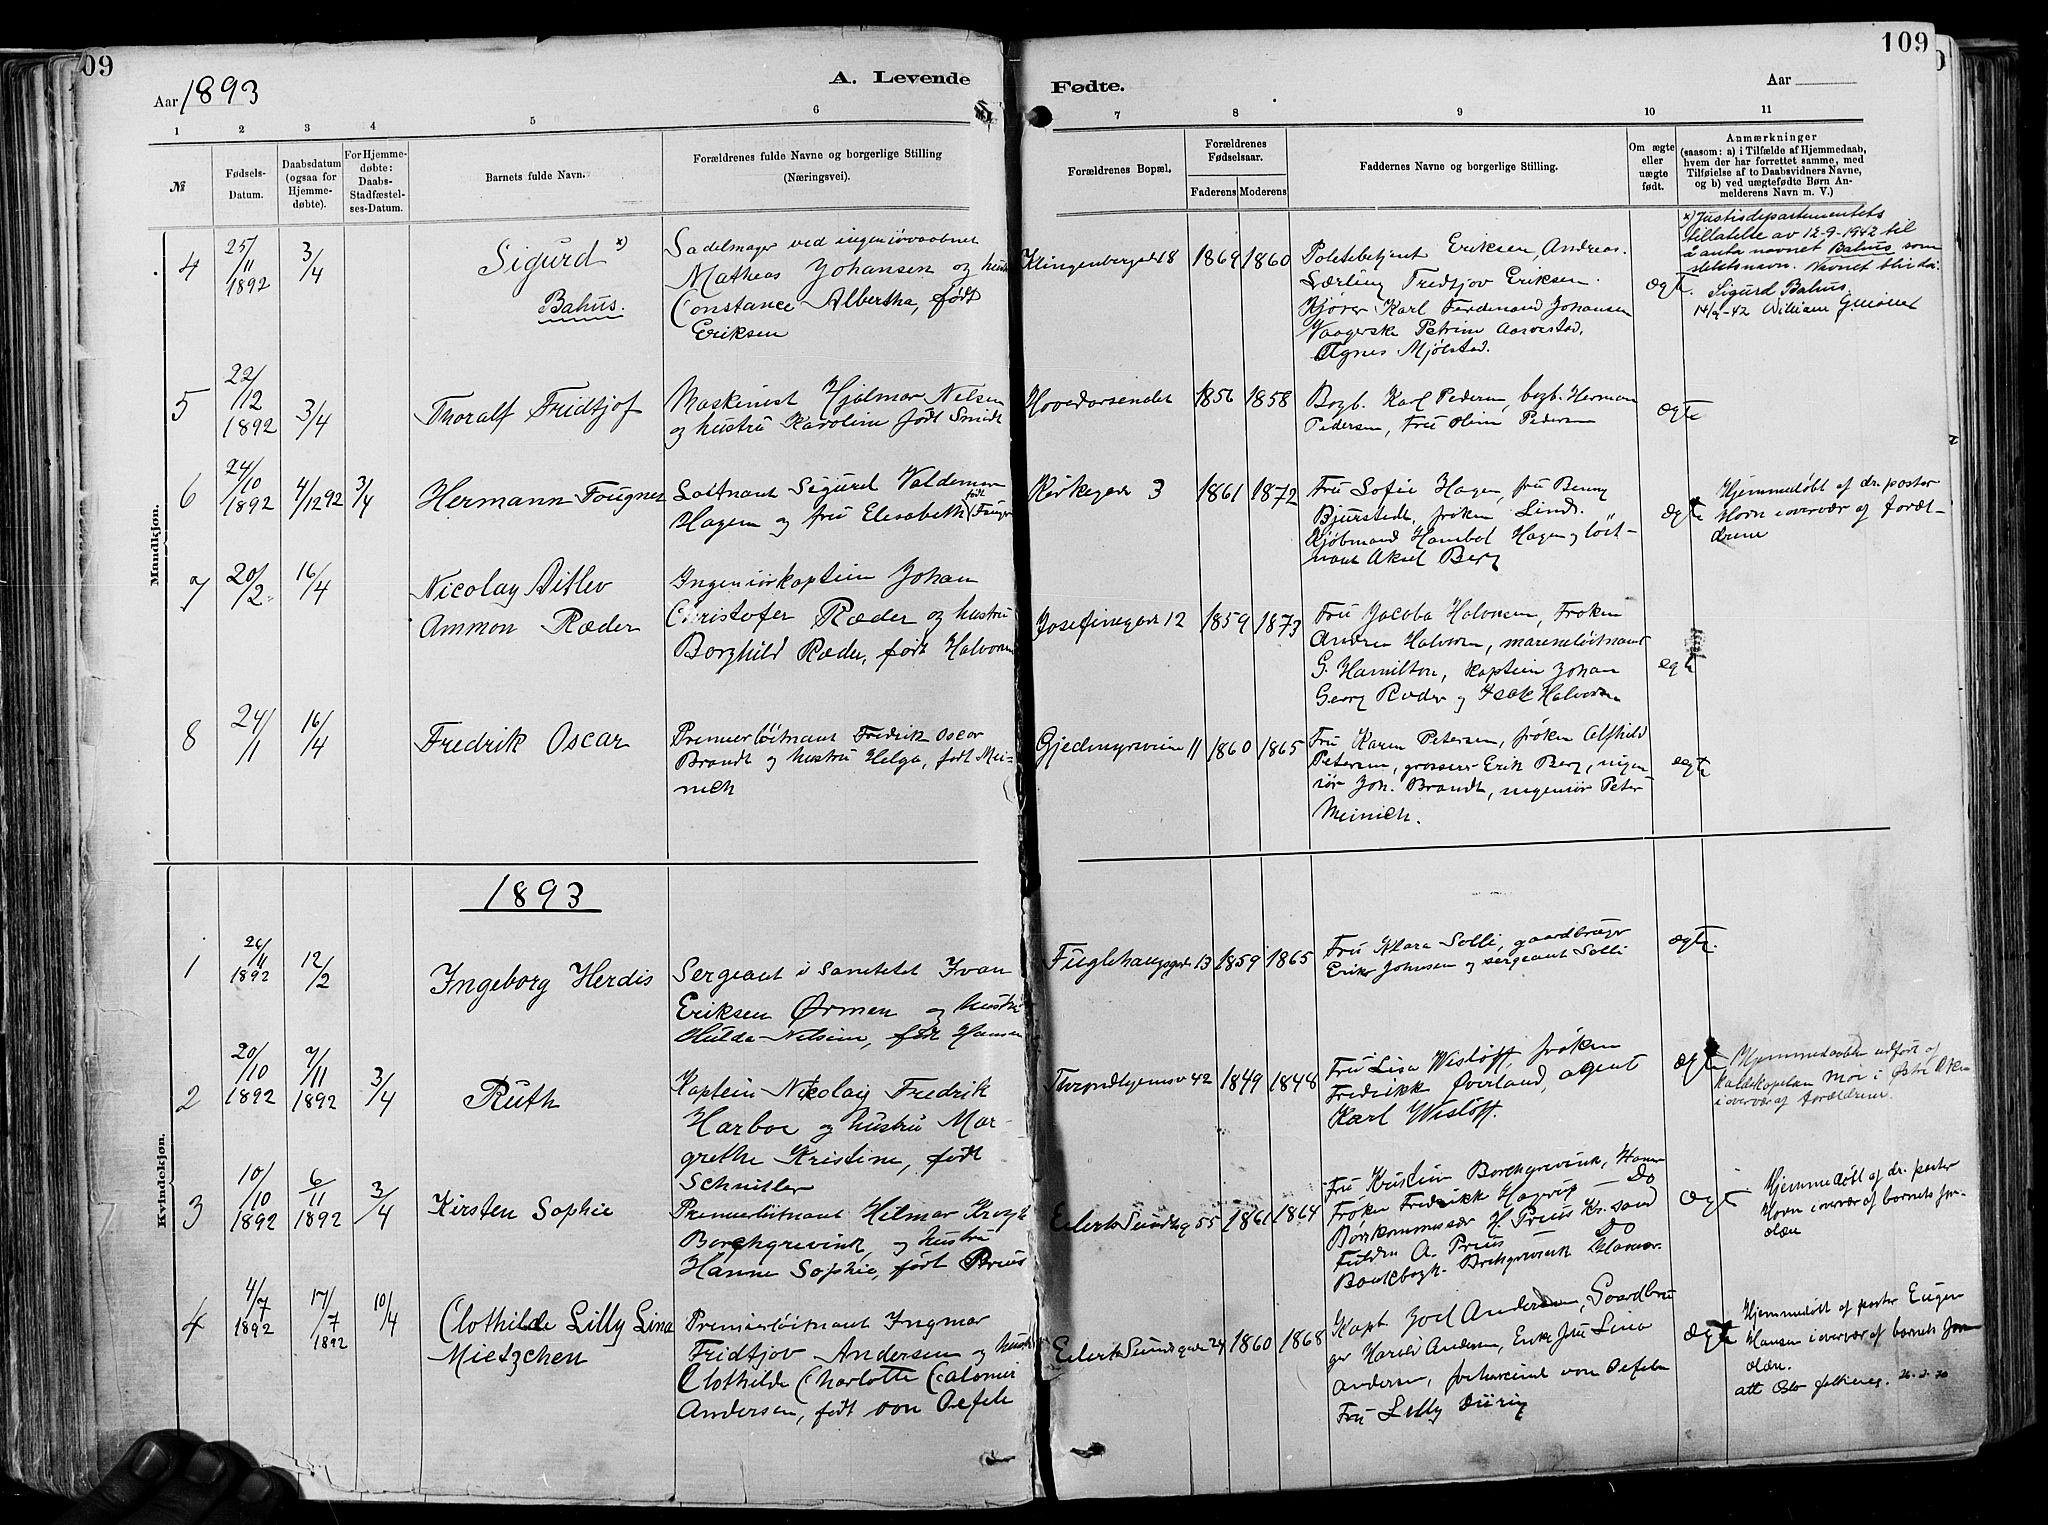 09
109
Aar 1893
A. Levende
Fødte.
Aar
1 2 3 4 5 6 7 8 9 10 11
№
Fødsels-
Datum.
Daabsdatum
(ogsaa for
Hjemme-
døbte).
For Hjemme-
døbte:
Daabs-
Stadfæstel-
ses-Datum.
Barnets fulde Navn.
Forældrenes fulde Navne og borgerlige Stilling
(Næringsvei).
Forældrenes Bopæl.
Forældrenes
Fødselsaar.
Faderens Moderens
Faddernes Navne og borgerlige Stilling.
Om ægte
eller
uægte
født.
Anmærkninger
(saasom: a) i Tilfælde af Hjemmedaab,
hvem der har forrettet samme, med
Tilføielse af to Daabsvidners Navne,
og b) ved uægtefødte Børn An-
melderens Navn m. V.)
Mandkjøn.
4
25/11
1892
3/4
Sigurd x)
Bahus.
Sadelmager ved ingeniørvaabnet
Matheas Johansen og hustru
Constance Albertha, født
Eriksen
Klingenberggd 18
1869 1860
Politibetjent Eriksen, Andreas.
Lærling Fredtjov Eriksen.
Kjører Karl Ferdinand Johansen
Petrine
Agnes Mjølstad.
ægte.
x) Justisdepartementets
tillatelse av 12-9-1942 til
å anta navnet Bahus som
slektsnavn. Navnet blir da:
Sigurd Bahus.
14/9-42 William
5
22/12
1892
3/4
Thoralf Fridtjof
Maskinist Hjalmar Nelsen
og hustru Karoline født Smidt
Hovedarsenalet
1856 1858
Bogb. Karl Pedersen, bogb. Herman
Pedersen, Fru Oline Pedersen
ægte
6
24/10
1892
4/12 92
3/4
Hermann Fougner
Løitnant Sigurd Valdemar
Hagen og fru Elisabeth født Fougner
Kirkegdn 3
1861 1872
Fru Sofie Hagen, fru Benny
Bjurstedt, frøken Lind.
Kjøbmand Hambol Hagen og løit-
nant Aksel Berg
ægte
Hjemmedøbt af dr. pastor
Horn i overvær af foræl-
drene
7
20/2
16/4
Nicolay Ditlev
Ammon Ræder
Ingeniørkaptein Johan
Christofer Ræder og hustru
Borghild Ræder, født Halvorsen
Josefinegdn 12
1859 1873
Fru Jacoba Halvorsen, Frøken
Andrea Halvorsen, marineløitnant
G. Hamilton, kaptein Johan
Georg Ræder og Isak Halvorsen
ægte
8
24/1
16/4
Fredrik Oscar
Premierløitnant Fredrik Oscar
Brandt og hustru Helga, født Mei-
nich
Gjedmyrsveien 11
1860 1865
Fru Karen Petersen, frøken Alfhild
Petersen, grosserer Erik Berg, ingeni-
ør Joh. Brandt, ingeniør Peter
Meinich.
ægte
Kvindekjøn.
1893
1
26/11
1892
12/2
Ingeborg Herdis
Sergeant i Sanitetet Ivan
Eriksen Ørmen og hustru
Hulda Nelsine, født Hansen
Fuglehaugsgdn 13
1859 1865
Fru Klara Solli, gaardbruger
Erik Johnsen og sergeant Solli
ægte.
2
20/10
1892
7/11
1892
3/4
Ruth
Kaptein Nikolay Fredrik
Harboe og hustru Mar-
grethe Kristine, født
Schnitler
Throndhjemsv 42
1849 1848
Fru Lisa Wisløff, frøken
Fredrikk Øverland, agent
Karl Wisløff.
ægte
Hjemmedaaben udført af
Kaldskapelan Moe i Østre Aker
i overvær af forældrene.
3
10/10
1892
6/11
1892
3/4
Kirsten Sophie
Premierløitnant Hilmar Krogh
Borchgrevink, og hustru
Hanne Sophie, født Preus
Eilert Sundtsg 55
1861 1864
Fru Kristine Borchgrevink, Hamar
Frøken Fredrikk Hagerup - Do
H. Preus Kr. sand
A. Preus Do
Bankbogh. Borchgrevink Hamar.
Ægte
Hjemmedøbt af dr. pastor
Horn i overvær af barnets for-
ældre
4
4/7
1892
17/7
1892
10/4
Clothilde Lilly Lina
Mietzchen
Premierløitnant Ingmar
Fridtjov Andersen og hustru
Clothilde Charlotte
Andersen, født von Oefele
Eilert Sundsgdn 24
1860 1868
Kapt Joel Andersen, Gaardbru
ger Harald Andersen, Enke fru Lina
Andersen, von Oefele
Fru Lilly Düring
ægte
Hjemmedøbt af pastor Eugen
Hansen i overvær af barnets for-
ældre.
att Oslo 26-2-30